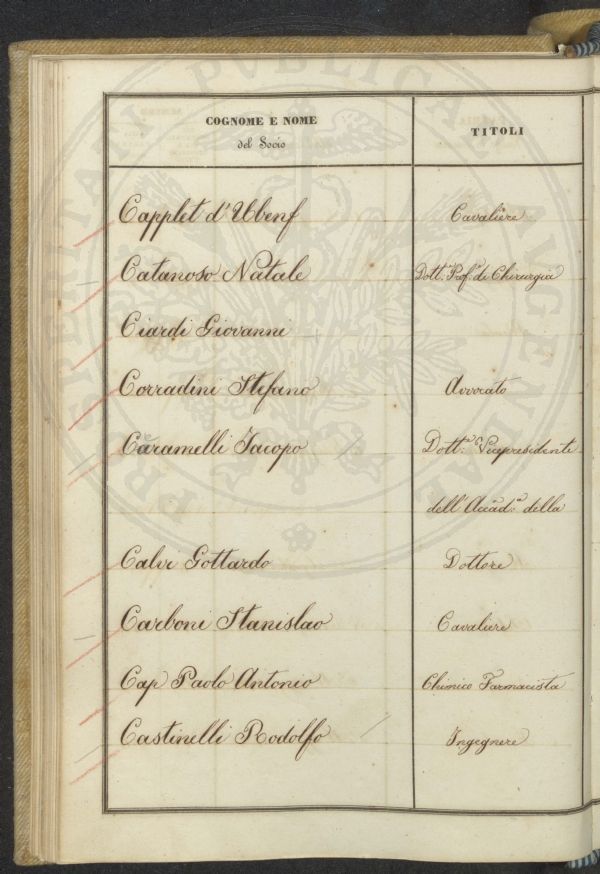 COGNOME E NOME
del Socio
TITOLI
Capplet d'Ubenf
Cavaliere
Catanoso Natale
Dott.e Prof.e di Chirurgia
Ciardi Giovanni
Corradini Stefano
Avvocato
Caramelli Jacopo
Dott.e Vicepresidente
dell'Accad.a della
Calvi Gottardo
Dottore
Carboni Stanislao
Cavaliere
Cap Paolo Antonio
Chimico Farmacista
Castinelli Rodolfo
Ingegnere
PROSPERITATI PVBLICAE AVGENDAE